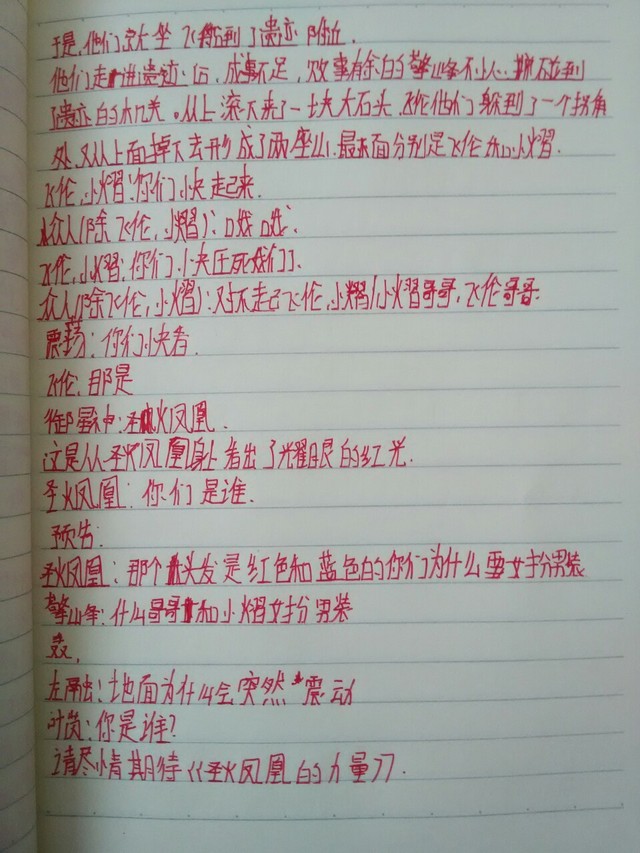 于是,他们就坐飞船到了遗迹附近.
他们走进遗迹后,成事不足,败事有余的擎山峰不小心碰到
了遗迹的机关。从上滚下来了一块大石头,飞伦他们躲到了一个拐角
处,又从上面掉下去形成了两座山.最下面分别是飞伦和小熠.
飞伦,小熠:你们快走起来.
众人(除飞伦,小熠):哦哦.
飞伦,小熠:你们快压死我们了.
众人(除飞伦,小熠):对不起飞伦,小熠/小熠哥哥,飞伦哥哥.
震扬:你们快看.
飞伦:那是
御星神:圣火凤凰.
这是从圣火凤凰身上着出了光耀眼的红光.
圣火凤凰:你们是谁.
预告:
圣火凤凰:那个头发是红色和蓝色的你们为什么要女扮男装
擎山峰:什么哥哥和小熠女扮男装
轰,
地面为什么会突然震动
叶岚:你是谁?
请尽情期待《圣火凤凰的力量》.